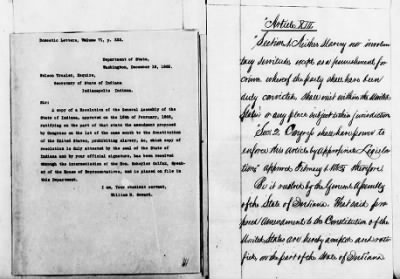 Domestic Letters, Volume 71, p. 232.
Department of State,
Washington, December 18, 1865.
Nelson Trusler, Esquire,
Secretary of State of Indiana
Indianapolis Indiana.
Sir:
A copy of a Resolution of the General Assembly of the
State of Indiana, approved on the 16th of February, 1865,
ratifying on the part of that state the amendment proposed
by Congress on the 1st of the same month to the Constitution
of the United States, prohibiting slavery, &c, which copy of
resolution is duly attested by the seal of the State of
Indiana and by your official signature, has been received
through the intermediation of the Hon. Schuyler Colfax, Speak-
er of the House of Representatives, and is placed on file in
this Department.
I am, Your obedient servant,
William H. Seward.
"Article XIII
"Section 1. Neither Slavery nor involun
tary servitude except as a punishment for
crime whereof the party shall have been
duly convicted shall exist within the United
States or any place subject to their jurisdiction
Sec. 2. Congress shall have power to
enforce this Article by Appropriate Legisla-
tion" approved February 1 1865 therefore
Be it resolved by the General Assembly
of the State of Indiana. That said pro
posed Amendment to the Constitution of the
United States are hereby accepted and rati-
fied, on the part of the State of Indiana